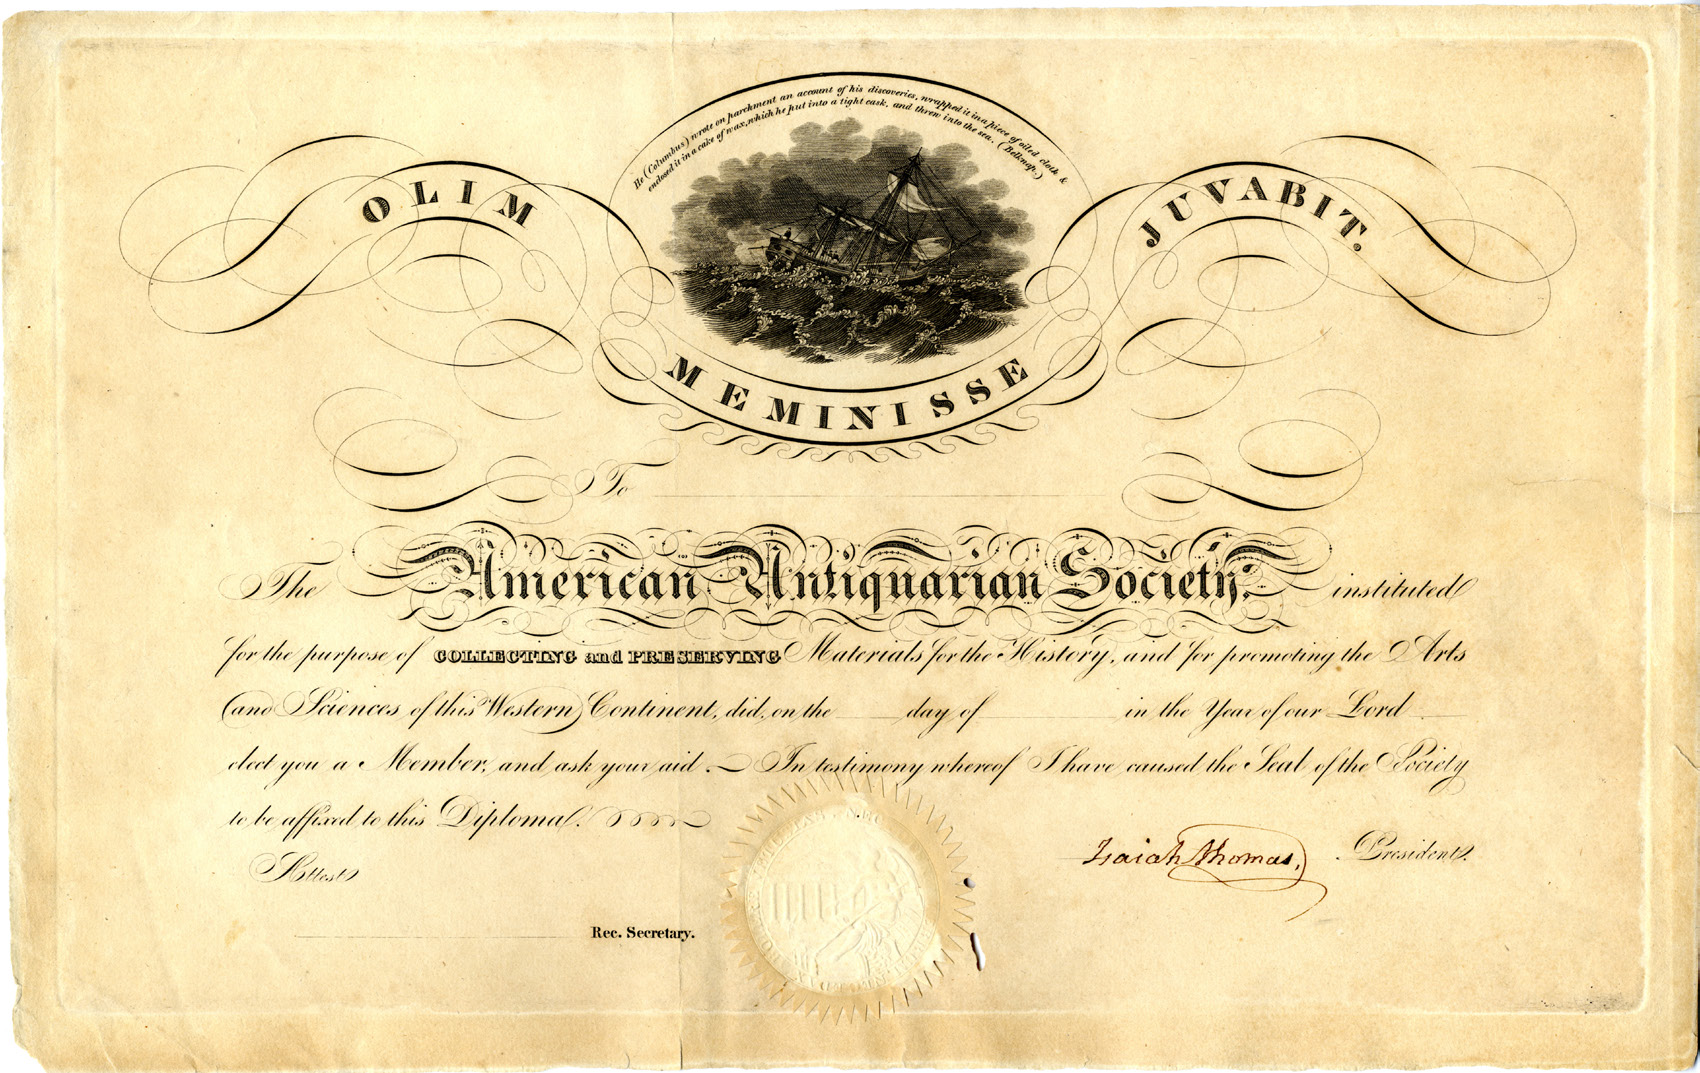 He (Columbus) wrote on parchment an account of his discoveries, wrapped it in a piece of oiled cloth &
enclosed it in a cake of wax, which he put into a tight cask, and threw into the sea. (Belknap.)
OLIM
JUVABIT.
MEMINISSE
To
The American Antiquarian Society, instituted
for the purpose of COLLECTING and PRESERVING Materials for the History, and for promoting the Arts
and Sciences of this Western Continent, did, on the day of in the Year of our Lord
elect you a Member, and ask your aid. — In testimony whereof I have caused the Seal of the Society
to be affixed to this Diploma.
Isaiah Thomas, President.
Attest
Rec. Secretary.